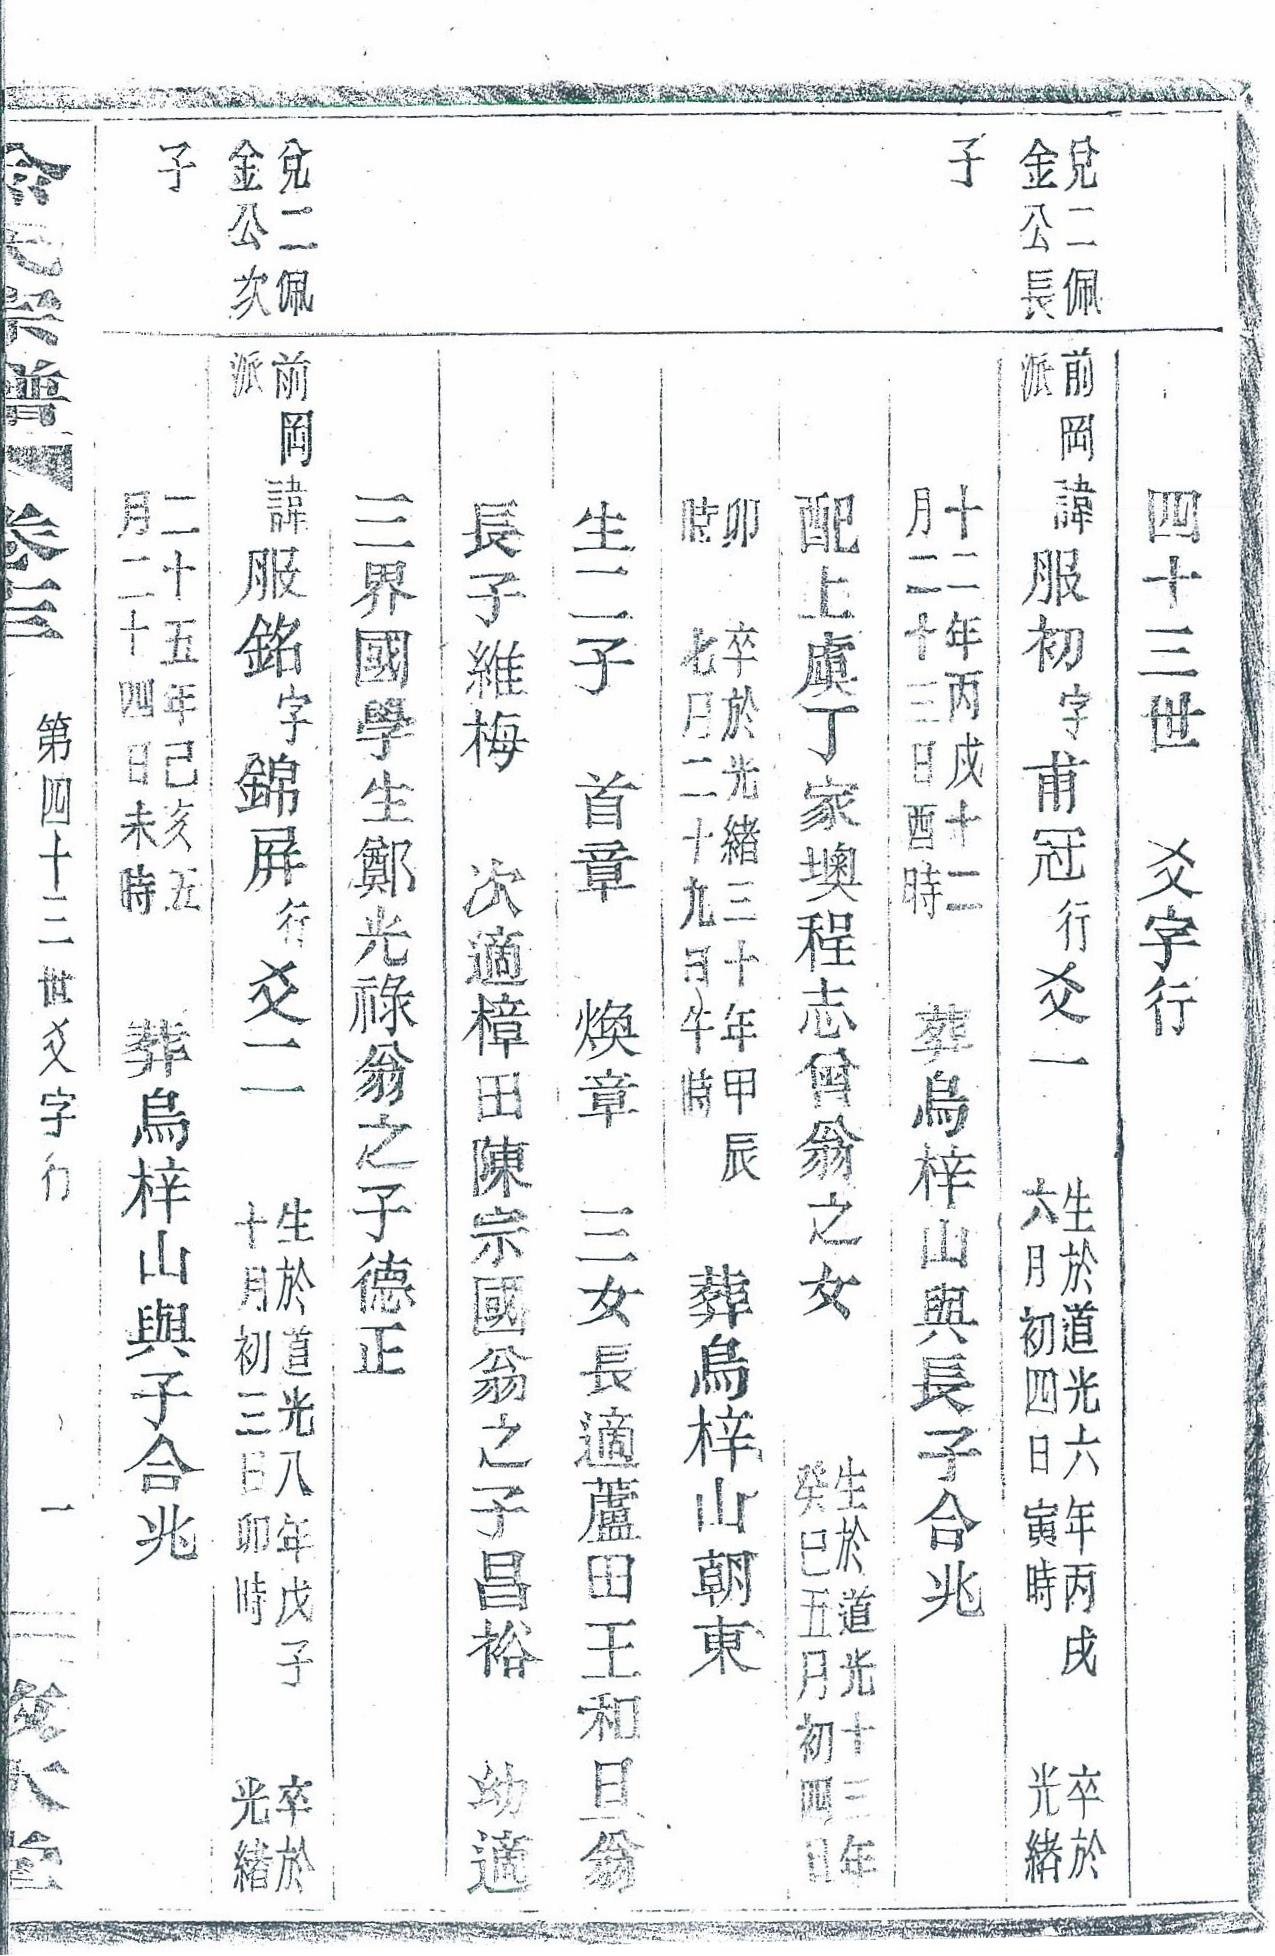 四十三世 爻字行
兌二佩
金公長
子
前岡諱服初字甫冠行爻一 生於道光六年丙戌六月初四日寅時 卒於光緒
派
十二年丙戌十二月二十三日酉時 葬烏梓山與長子合兆
配上虞丁家墺程志曾翁之女 生於道光十三年癸巳五月初四日
卯時 卒於光緒三十年甲辰七月二十九日午時 葬烏梓山朝東
生二子 首章 煥章 三女長適蘆田王和旦翁
長子維梅 次適樟田陳宗國翁之子昌裕 幼適
三界國學生鄭光祿翁之子德正
兌二佩
金公次
子
前岡諱服銘字錦屏行爻二 生於道光八年戊子十月初三日卯時 卒於光緒
派
二十五年己亥五月二十四日未時 葬烏梓山與子合兆
氏宗譜 卷三 第四十三世爻字行 一 堂